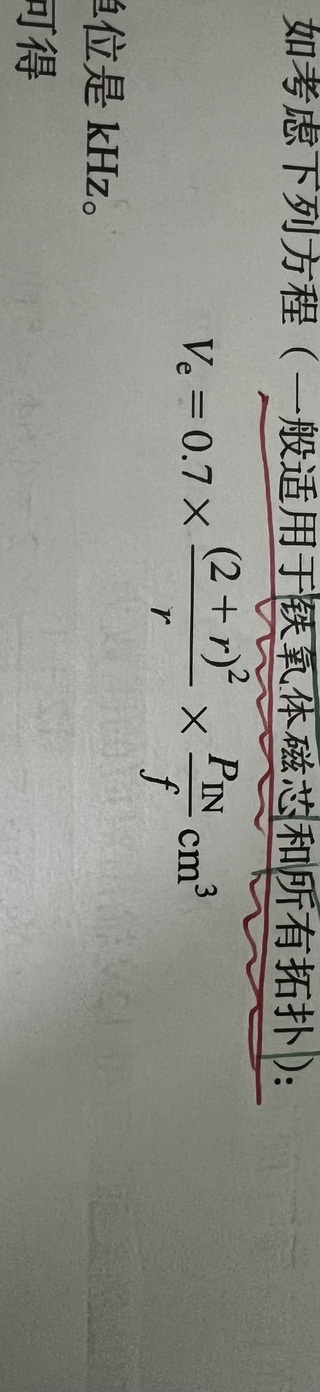 如考虑下列方程（一般适用于铁氧体磁芯和所有拓扑）：
V_e = 0.7 × \frac{(2 + r)^2}{r} × \frac{P_{IN}}{f} cm^3
单位是 kHz。
可得